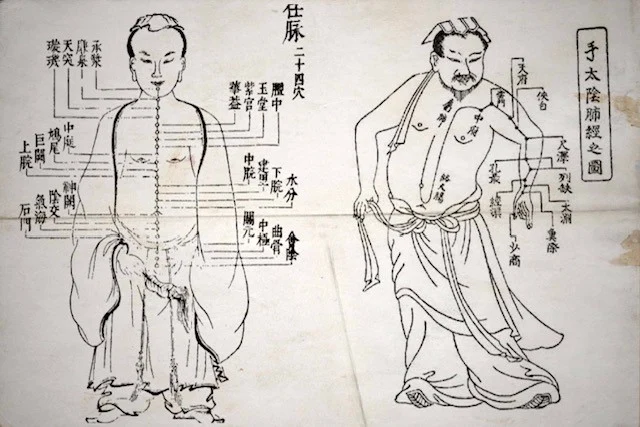 手太陰肺經之圖
天府
俠白
中府
尺澤
列缺
孔最
太淵
經渠
魚際
少商
絡大腸
任脉
二十四穴
膻中
玉堂
紫宮
華蓋
承漿
廉泉
天突
璇璣
水分
下脘
建里
中脘
中庭
鳩尾
巨闕
上脘
會陰
曲骨
中極
關元
神闕
陰交
氣海
石門